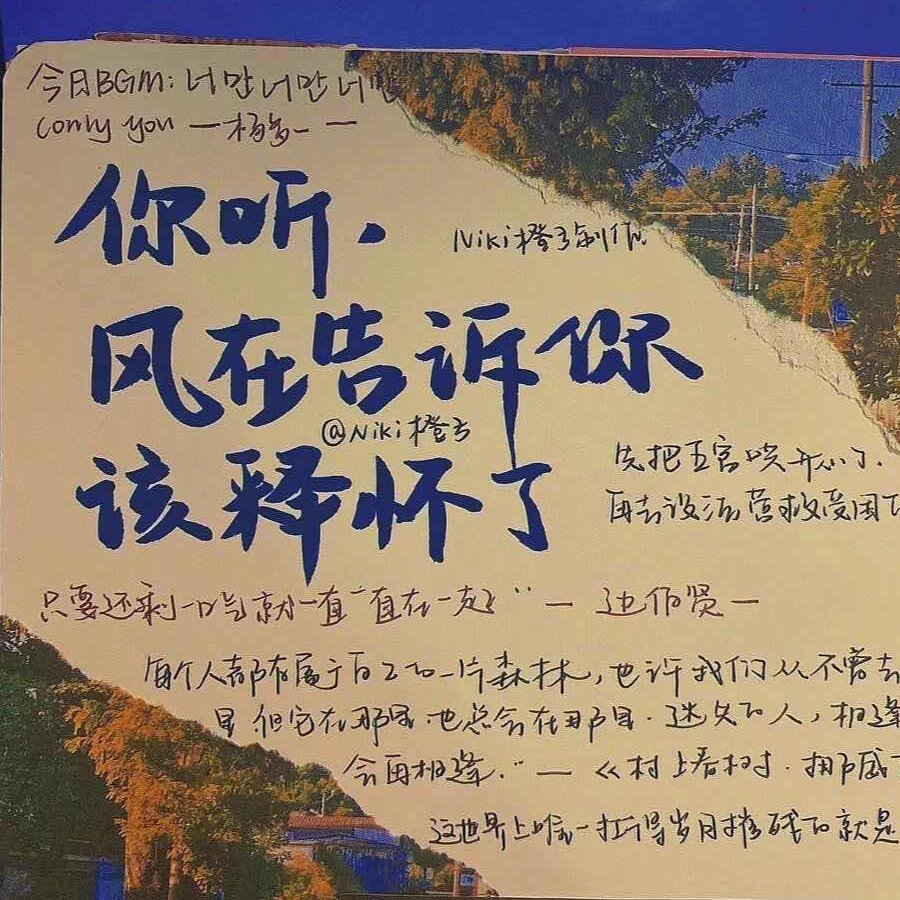 今日BGM: 너만너만너만
(only you — 杨多一 —
你听,
Niki橙子制作
风在告诉你
@Niki橙子
该释怀了
先把五官哄开心了.
再去设法营救受困
只要还剩一口气就一直一直在一起" — 边伯贤 —
每个人都有属于自己的一片森林,也许我们从不曾去
里但它在那里.也总会在那里.迷失的人,相逢
会再相逢." — 《村上春树.挪威
这世界上唯一扛得岁月摧残的就是